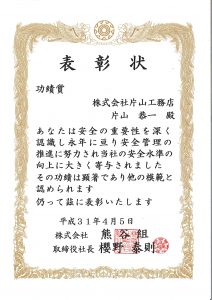 表彰状
功績賞
株式会社片山工務店
片山 恭一 殿
あなたは安全の重要性を深く
認識し永年に亘り安全管理の
推進に努力され当社の安全水準の
向上に大きく寄与されました
その功績は顕著であり他の模範と
認められます
仍って茲に表彰いたします
平成31年4月5日
株式会社 熊谷組
取締役社長 櫻野 泰則